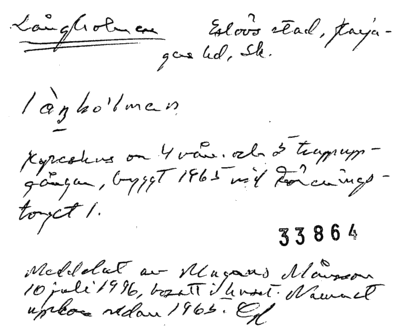 Långholmen Eslövs stad, Harja-
gers hd, Sk.
làŋhòlman
Hyreshus om 4 vån. och 5 trappupp-
gångar, byggt 1965 vid Förenings-
torget 1.
33864
Meddelat av Magnus Månsson
10 juli 1996, bosatt i huset. Namnet
uppkom redan 1965.